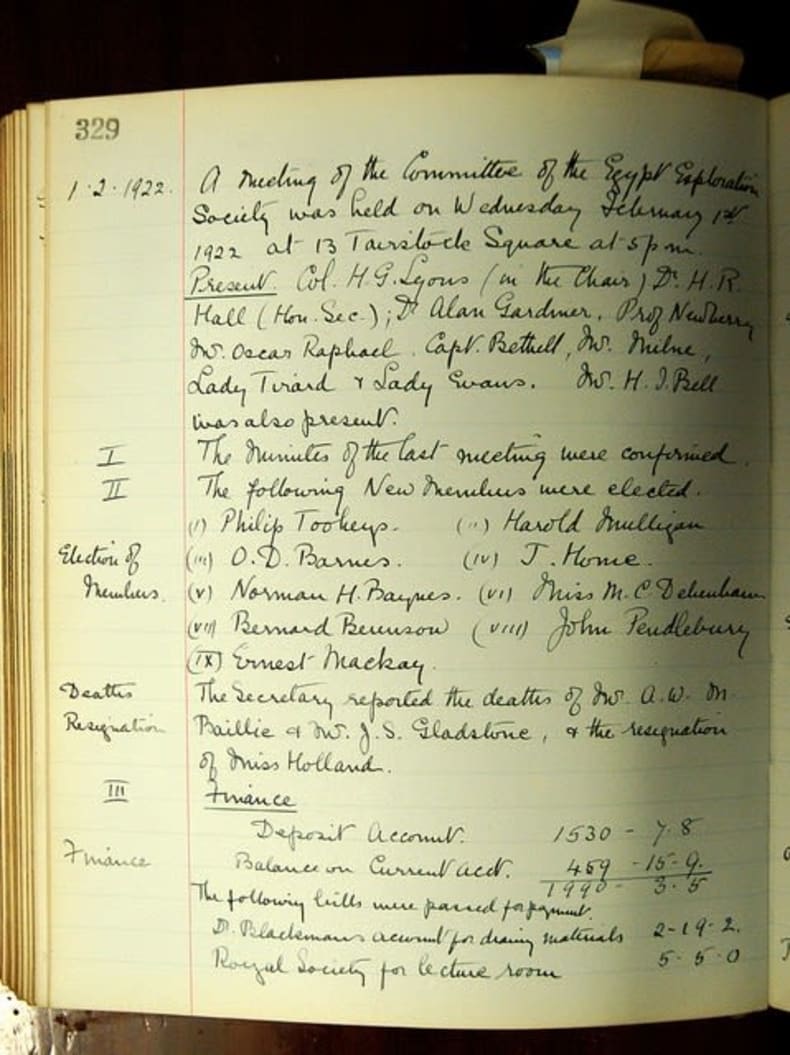 329
1·2·1922. A meeting of the Committee of the Egypt Exploration
Society was held on Wednesday February 1st
1922 at 13 Tavistock Square at 5 p.m.
Present. Col. H.G. Lyons (in the Chair) Dr. H.R.
Hall (Hon. Sec.); Dr Alan Gardiner, Prof Newberry
Mr. Oscar Raphael. Capt. Bethell, Mr. Milne,
Lady Tirard & Lady Evans. Mr. H.I. Bell
was also present.
I The Minutes of the last meeting were confirmed.
II The following New Members were elected.
(i) Philip Tookeys. (ii) Harold Mulligan
Election of (iii) O.D. Barnes. (iv) J. Home.
Members. (v) Norman H. Baynes. (vi) Miss M.C. Debenham
(vii) Bernard Berenson (viii) John Pendlebury
(IX) Ernest Mackay.
Deaths The Secretary reported the deaths of Mr. A.W. M.
Resignation Baillie & Mr. J.S. Gladstone, & the resignation
of Miss Holland.
III Finance
Deposit Account. 1530 - 7·8
Finance Balance on Current acct. 459 - 15 - 9.
1990 - 3·5
The following bills were passed for payment.
Dr. Blackman's account for drawing materials 2-19-2.
Royal Society for lecture room 5·5·0